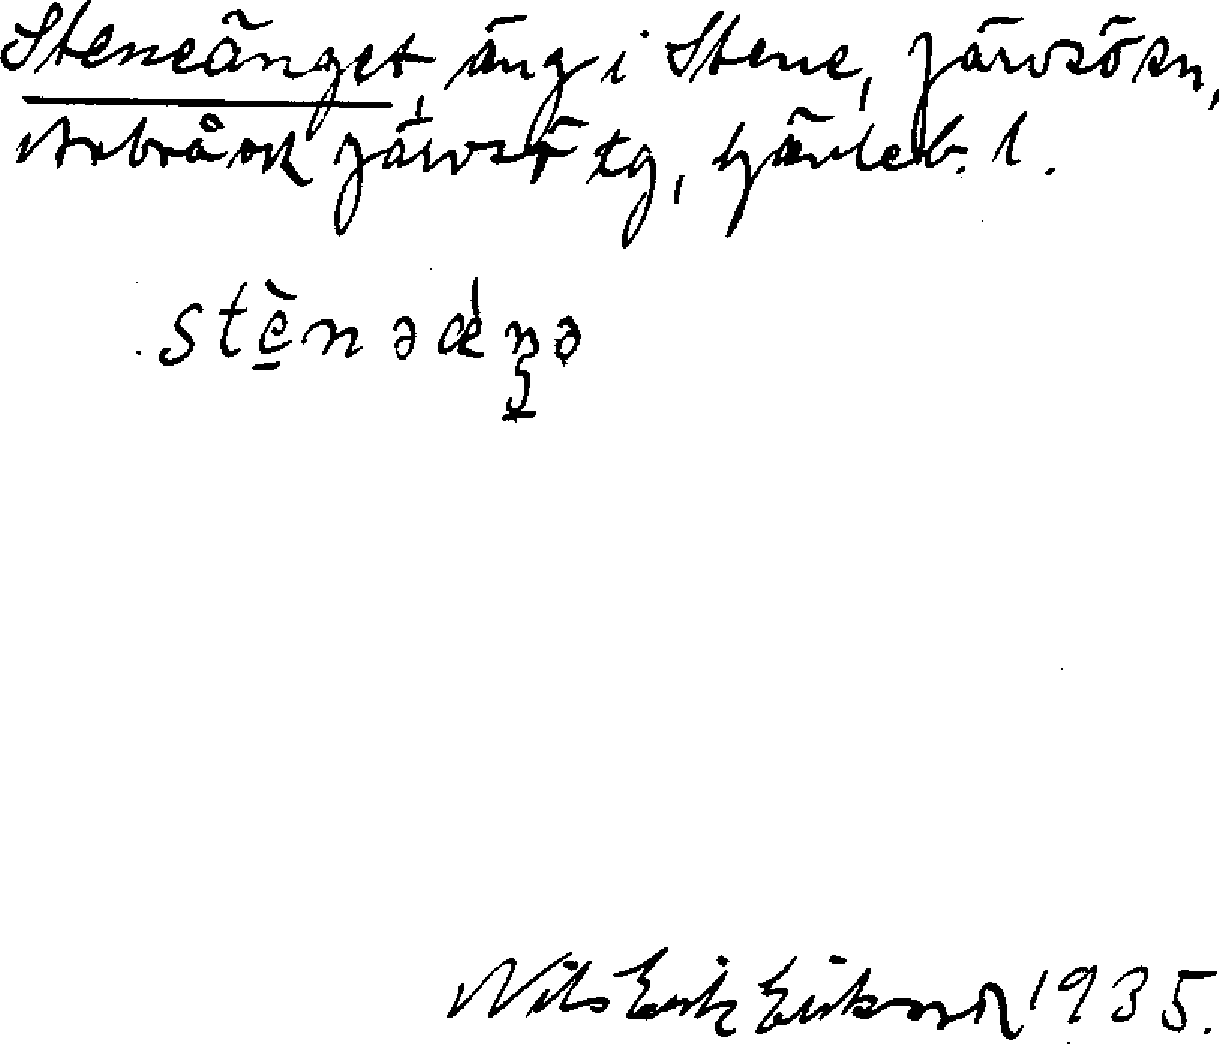 Steneänget, äng i Stene, Järvsö sn,
Arbrå och Järvsö tg, Gävleb. l.
stè̱nəǽŋə
Nils Erik Erikson 1935.